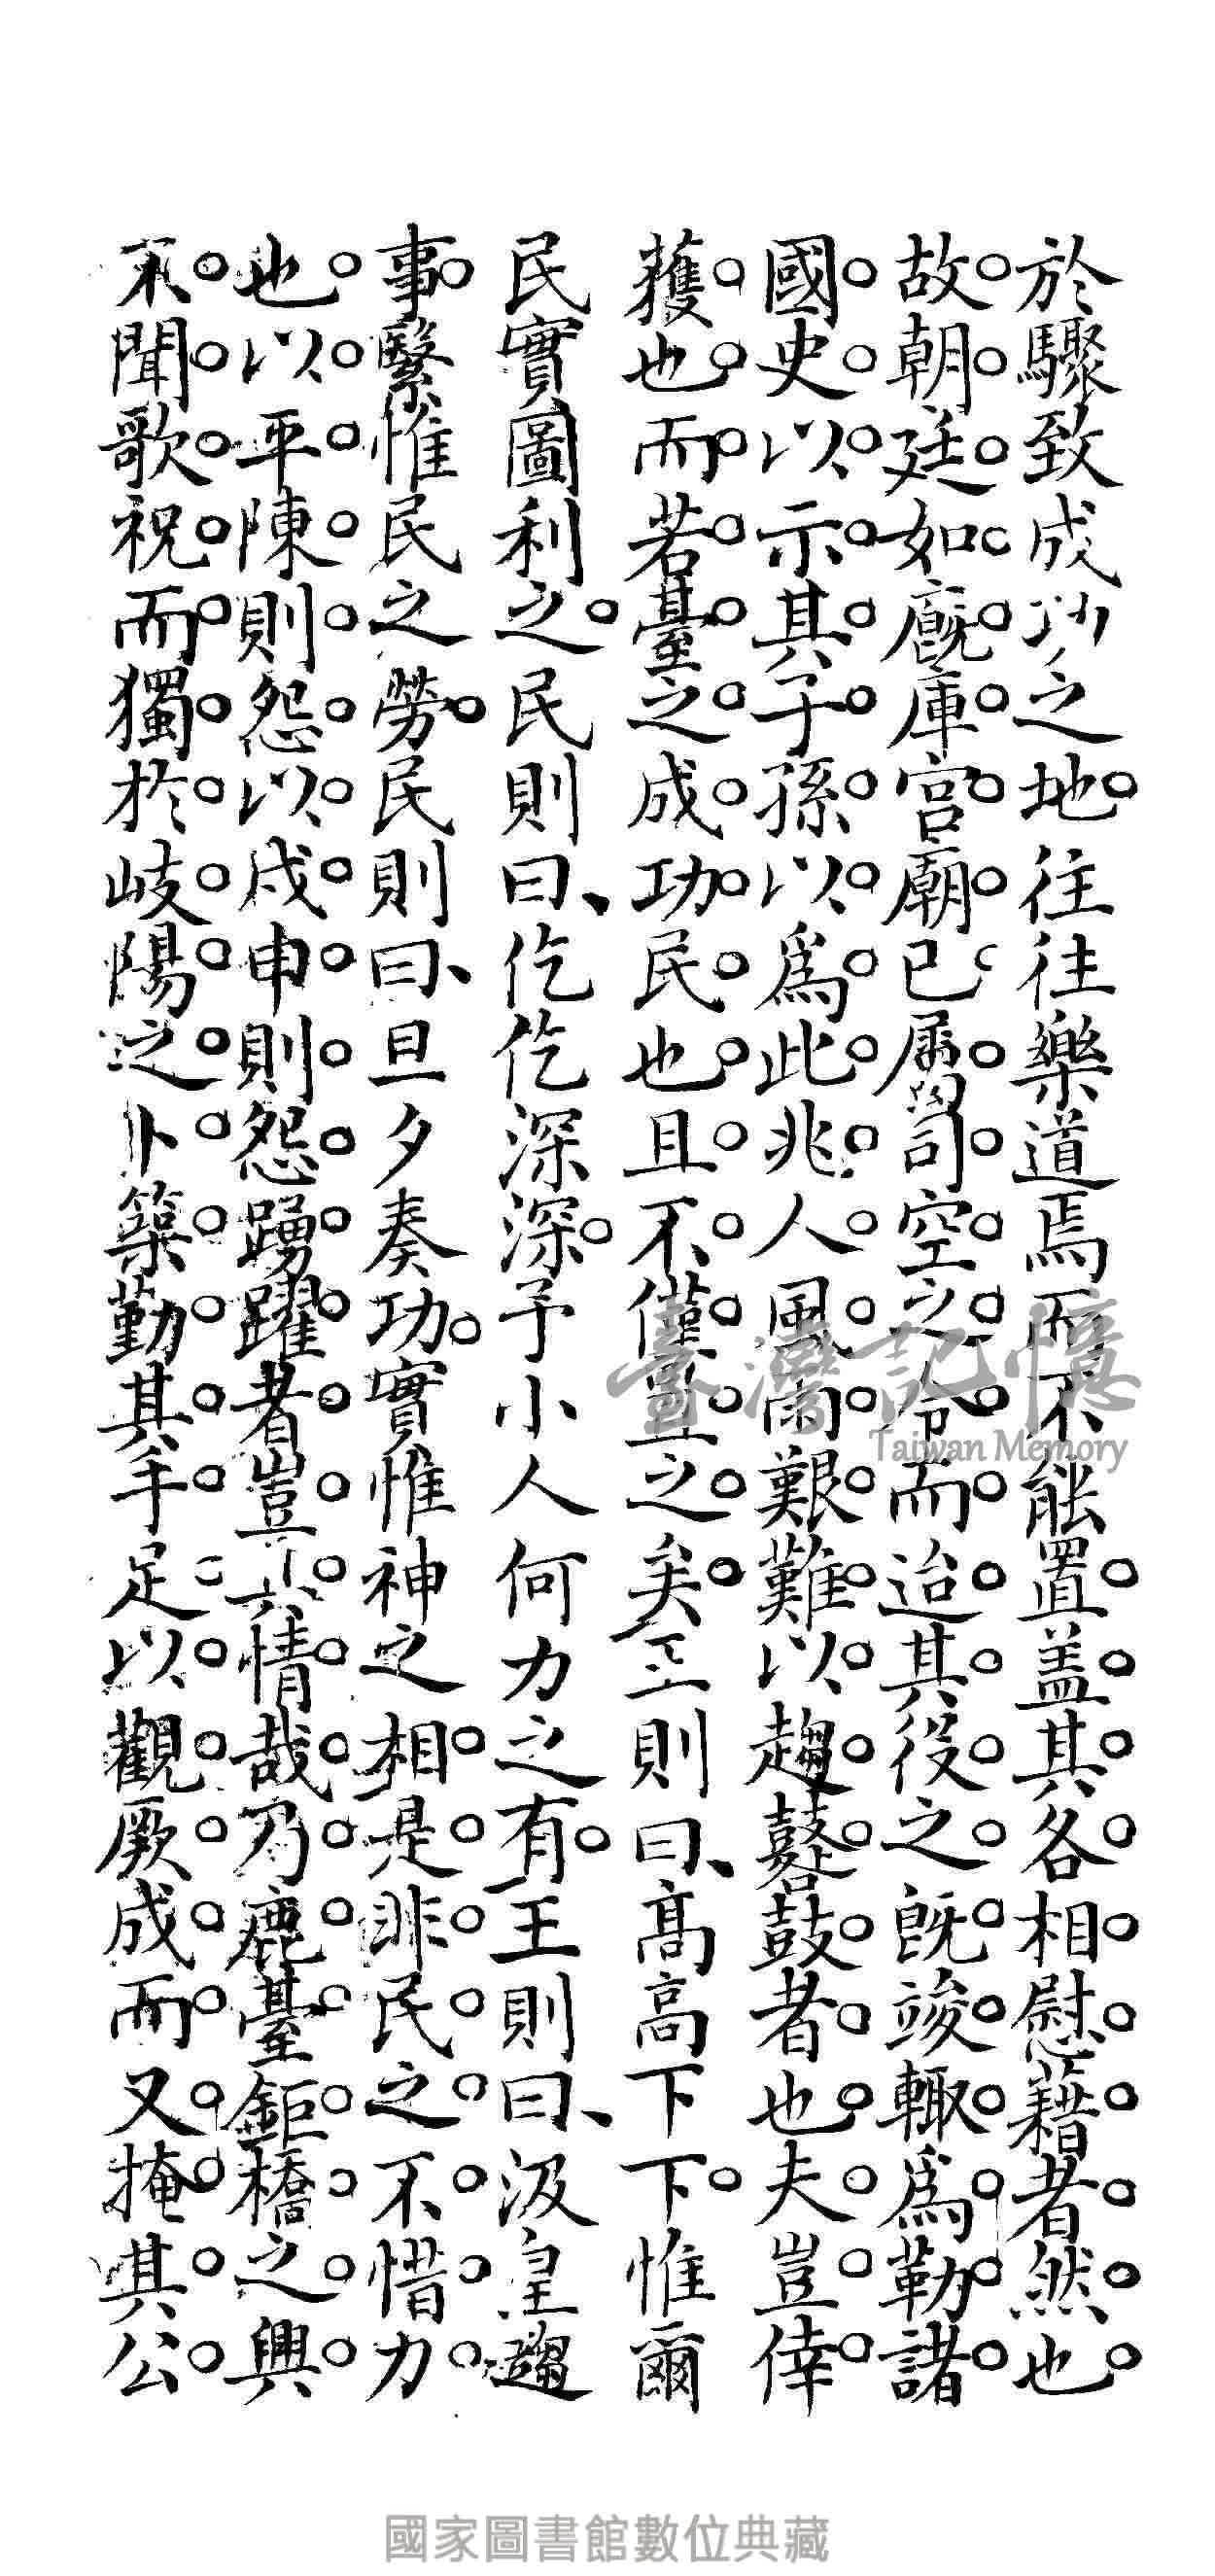 於驟致成功之地往往樂道焉而不能置盖其各相慰藉者然也
故朝廷如廐庫宫廟已屬司空之令而迨其役之既竣輙爲勒諸
國史以示其子孫以爲此兆人風雨艱難以趨鼛鼓者也夫豈倖
蒦也而若臺之成功民也且不僅亟之矣王則曰高高下下惟爾
民實圖利之民則曰仡仡深深予小人何力之有王則曰汲皇趨
事繄惟民之勞民則曰旦夕奏功實惟神之相是非民之不惜力
也以平陳則怨以戍申則怨踴躍者豈其情哉乃鹿臺鉅橋之興
不聞歌祝而獨於岐陽之卜築勤其手足以觀厥成而又掩其公
臺灣記憶
Taiwan Memory
國家圖書館數位典藏